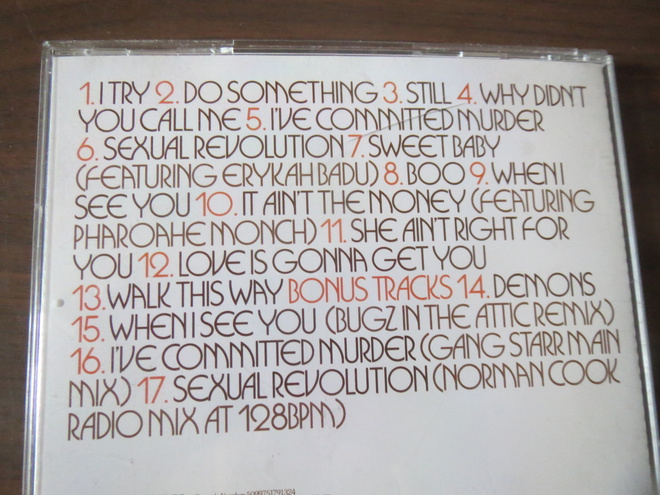 1. I TRY 2. DO SOMETHING 3. STILL 4. WHY DIDN'T
YOU CALL ME 5. I'VE COMMITTED MURDER
6. SEXUAL REVOLUTION 7. SWEET BABY
(FEATURING ERYKAH BADU) 8. BOO 9. WHEN I
SEE YOU 10. IT AIN'T THE MONEY (FEATURING
PHAROAHE MONCH) 11. SHE AIN'T RIGHT FOR
YOU 12. LOVE IS GONNA GET YOU
13. WALK THIS WAY BONUS TRACKS 14. DEMONS
15. WHEN I SEE YOU (BUGZ IN THE ATTIC REMIX)
16. I'VE COMMITTED MURDER (GANG STARR MAIN
MIX) 17. SEXUAL REVOLUTION (NORMAN COOK
RADIO MIX AT 128BPM)